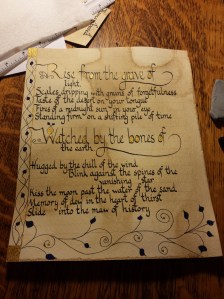 Rise from the grave of
light.
Scales dripping with grains of forgetfulness
Taste of the desert on your tongue
Fires of a midnight sun in your eye
Standing firm on a shifting pile of time
Watched by the bones of
the earth.
Hugged by the chill of the wind
Blink against the spines of the
vanishing star
Kiss the moon past the water of the sand
Memory of dew in the heart of thirst
Slide into the maw of history